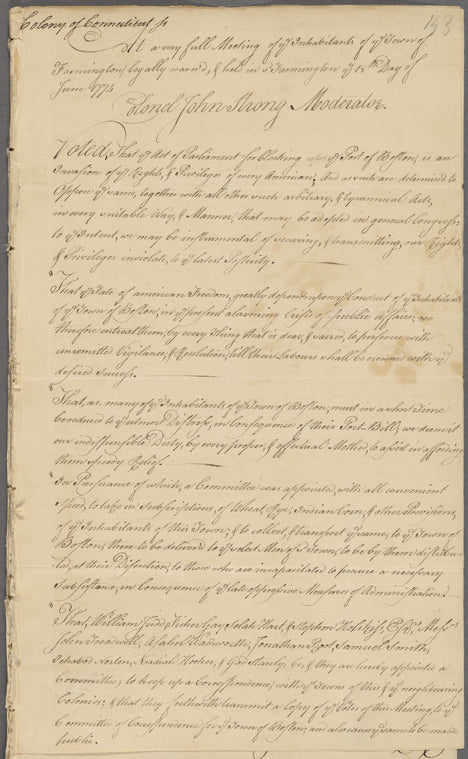 Colony of Connecticut ss
133
At a very full Meeting of yᵉ Inhabitants of yᵉ Town of
Farmington, legally warn'd, & held in sd Farmington yᵉ 15th Day of
June 1774
Colonel John Strong Moderator.
Voted, That yᵉ Act of Parliament for blocking up yᵉ Port of Boston, is an
Invasion of yᵉ Rights, & Privileges of every American, And as such are determin'd to
Oppose yᵉ same, together with all other such arbitrary, & tyrannical Acts,
in every suitable Way, & Manner, that may be adopted in general Congress:
to yᵉ Intent, we may be instrumental of securing, & transmitting, our Rights,
& Privileges inviolate, to yᵉ latest Posterity.
"That yᵉ Fate of american Freedom, greatly depends upon yᵉ Conduct of yᵉ Inhabitants
of yᵉ Town of Boston, in yᵉ present alarming Crisis of public Affairs; we
therefore intreat them, by every Thing that is dear, & sacred, to persevere with
unremitted Vigilance, & Resolution, till their Labours shall be crowned with yᵉ
desired Success.
"That, as many of yᵉ Inhabitants of yᵉ Town of Boston, must in a short Time
be reduced to yᵉ utmost Distress, in Consequence of their Port-Bill; we deem it
our indispensible Duty, by every proper, & effectual Method, to assist in affording
them speedy Relief.
"In Pursuance of which, a Committee was appointed, with all convenient
Speed, to take in Subscriptions, of Wheat, Rye, Indian Corn, & other Provisions,
of yᵉ Inhabitants of this Town; & to collect, & transport yᵉ same, to yᵉ Town of
Boston; there to be delivered to yᵉ select Men of sd Town, to be by them distribu-
ted, at their Discretion, to those who are incapacitated to procure a necessary
Subsistance, in Consequence of yᵉ late oppressive Measures of Administration.
"That, William Judd, Fisher Gay, Selah Hart, & Stephen Hotchkiss, Esqrs, Messrs
John Treadwell, Asahel Wadsworth, Jonathan Root, Samuel Smith,
Ichabod Norton, Noadiah Hooker, & Gad Stanly, be, & they are hereby appointed a
Committee, to keep up a Correspondence, with yᵉ Towns of this & yᵉ neighbouring
Colonies; & that they forthwith transmit a Copy of yᵉ Votes of this Meeting, to yᵉ
Committee of Correspondence for yᵉ Town of Boston; and also cause yᵉ same to be made
public.